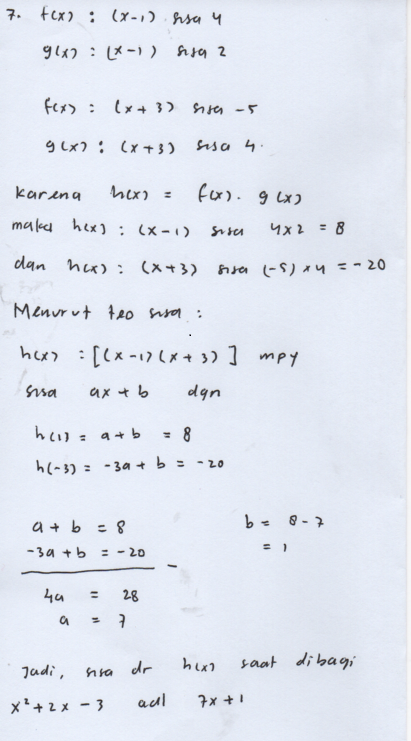 7. f(x) : (x-1) sisa 4
g(x) : (x-1) sisa 2
f(x) : (x+3) sisa -5
g(x) : (x+3) sisa 4.
Karena h(x) = f(x). g(x)
maka h(x) : (x-1) sisa 4x2 = 8
dan h(x) : (x+3) sisa (-5) x 4 = -20
Menurut teo sisa :
h(x) : [(x-1)(x+3)] mpy
sisa ax + b dgn
h(1) = a+b = 8
h(-3) = -3a + b = -20
a + b = 8
-3a + b = -20 -
4a = 28
a = 7
b = 8-7
= 1
Jadi, sisa dr h(x) saat dibagi
x²+2x-3 adl 7x+1